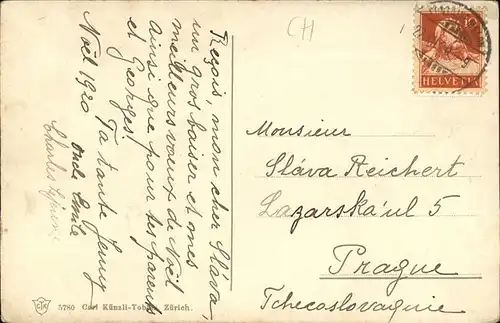 Reçois, mon cher Sláva,
un gros baiser et mes
meilleurs voeux de Noël
ainsi que pour tes parents
et Georges!
Ta tante Jenny
Noël 1920
Oncle Emile
Charles
CH
10
HELVETIA
Monsieur
Sláva Reichert
Lazarská ul 5
Prague
Tchecoslovaquie
5780 Carl Künzli-Tobler, Zürich.